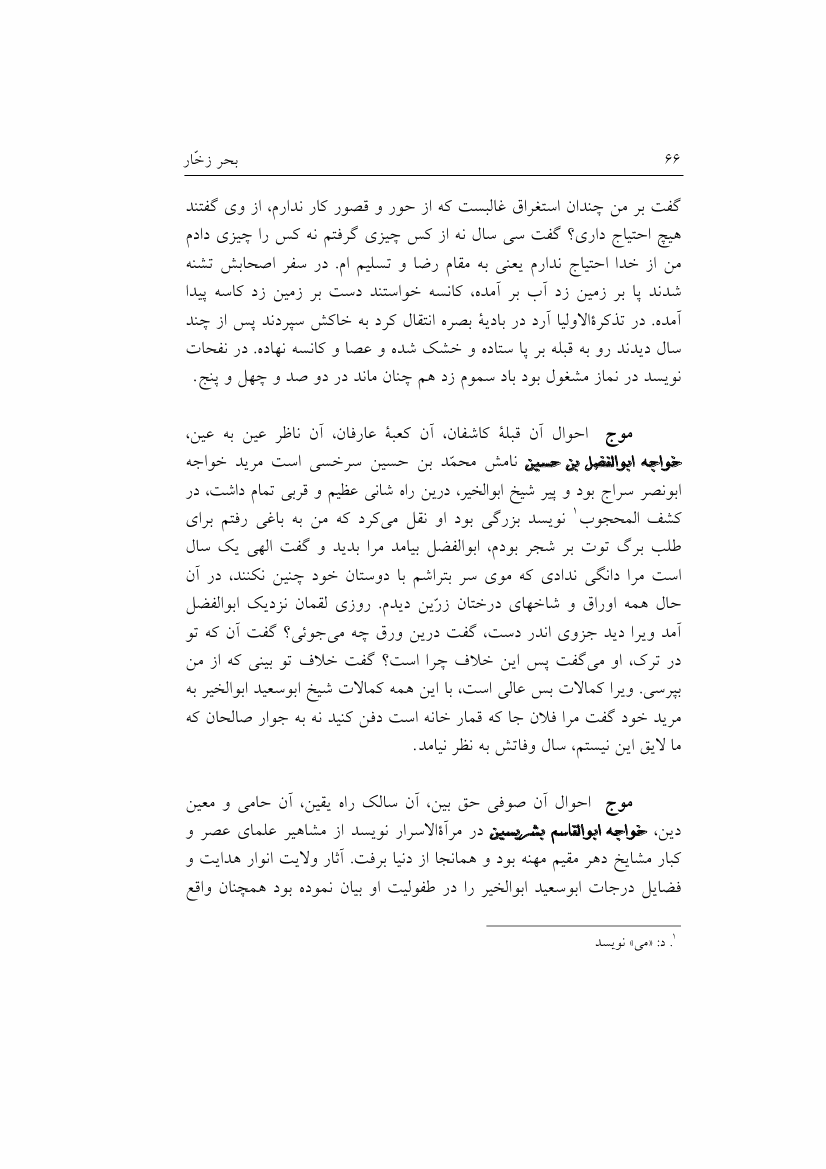 ۶۶ بحر زخّار
گفت بر من چندان استغراق غالبست که از حور و قصور کار ندارم، از وی گفتند
هیچ احتیاج داری؟ گفت سی سال نه از کس چیزی گرفتم نه کس را چیزی دادم
من از خدا احتیاج ندارم یعنی به مقام رضا و تسلیم ام. در سفر اصحابش تشنه
شدند پا بر زمین زد آب بر آمده، کانسه خواستند دست بر زمین زد کاسه پیدا
آمده. در تذکرةالاولیا آرد در بادیۀ بصره انتقال کرد به خاکش سپردند پس از چند
سال دیدند رو به قبله بر پا ستاده و خشک شده و عصا و کانسه نهاده. در نفحات
نویسد در نماز مشغول بود باد سموم زد هم چنان ماند در دو صد و چهل و پنج.
موج احوال آن قبلۀ کاشفان، آن کعبۀ عارفان، آن ناظر عین به عین،
خواجه ابوالفضل بن حسین نامش محمّد بن حسین سرخسی است مرید خواجه
ابونصر سراج بود و پیر شیخ ابوالخیر، درین راه شانی عظیم و قربی تمام داشت، در
کشف المحجوب۱ نویسد بزرگی بود او نقل می‌کرد که من به باغی رفتم برای
طلب برگ توت بر شجر بودم، ابوالفضل بیامد مرا بدید و گفت الهی یک سال
است مرا دانگی ندادی که موی سر بتراشم با دوستان خود چنین نکنند، در آن
حال همه اوراق و شاخهای درختان زرّین دیدم. روزی لقمان نزدیک ابوالفضل
آمد ویرا دید جزوی اندر دست، گفت درین ورق چه می‌جوئی؟ گفت آن که تو
در ترک، او می‌گفت پس این خلاف چرا است؟ گفت خلاف تو بینی که از من
بپرسی. ویرا کمالات بس عالی است، با این همه کمالات شیخ ابوسعید ابوالخیر به
مرید خود گفت مرا فلان جا که قمار خانه است دفن کنید نه به جوار صالحان که
ما لایق این نیستم، سال وفاتش به نظر نیامد.
موج احوال آن صوفی حق بین، آن سالک راه یقین، آن حامی و معین
دین، خواجه ابوالقاسم بشریسین در مرآةالاسرار نویسد از مشاهیر علمای عصر و
کبار مشایخ دهر مقیم مهنه بود و همانجا از دنیا برفت. آثار ولایت انوار هدایت و
فضایل درجات ابوسعید ابوالخیر را در طفولیت او بیان نموده بود همچنان واقع
۱. د: «می» نویسد